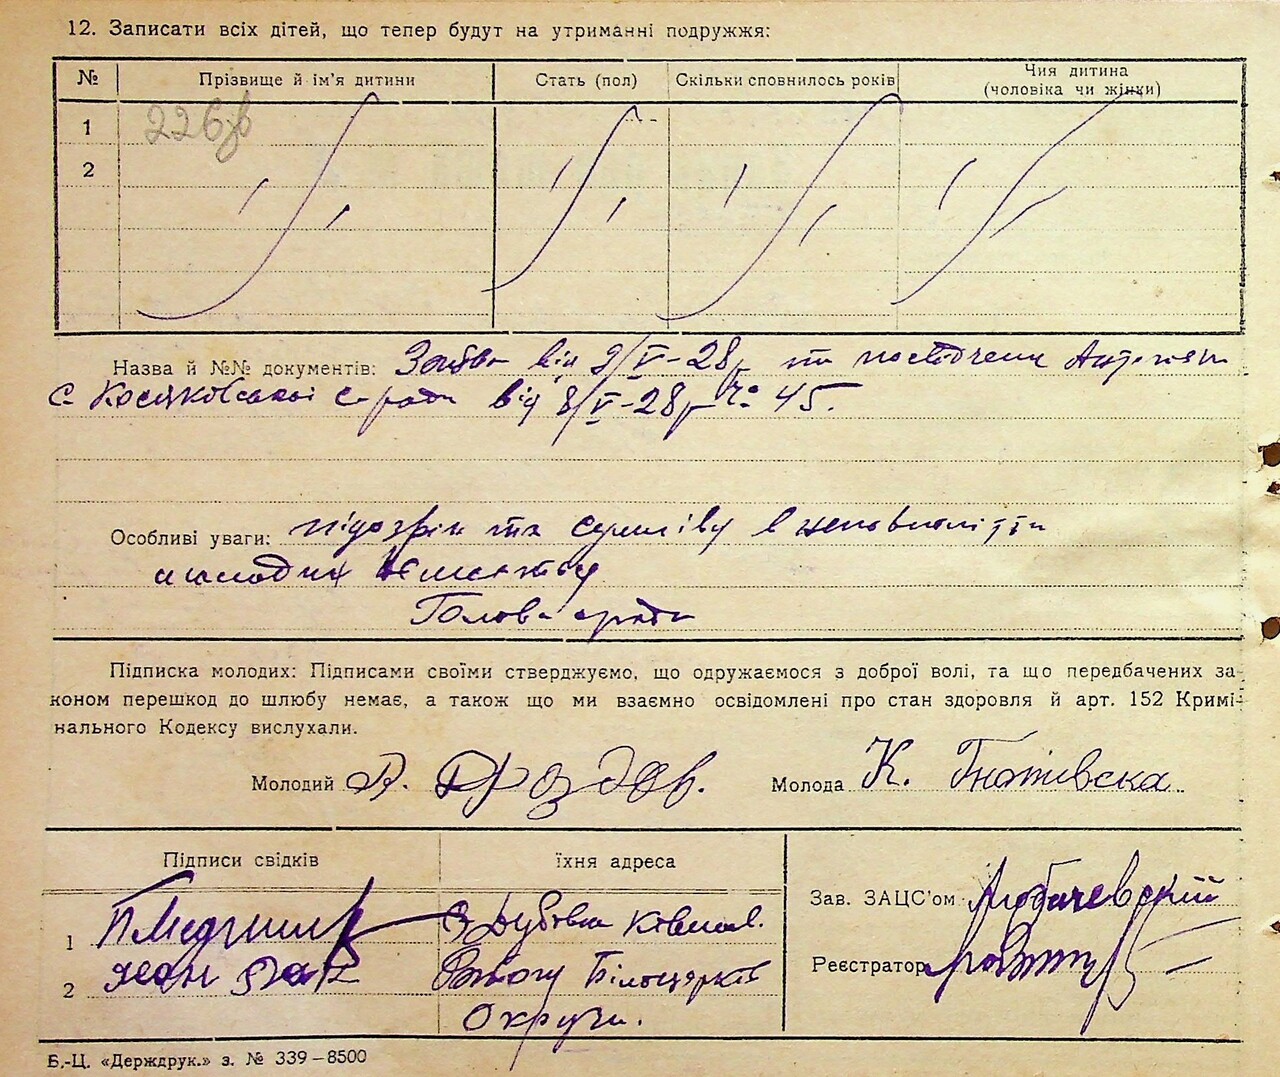 12. Записати всіх дітей, що тепер будут на утриманні подружжя:
№ Прізвище й ім'я дитини Стать (пол) Скільки сповнилось років Чия дитина
(чоловіка чи жінки)
1
2
Назва й №№ документів: Заява від 9/V-28р та
с. Косяківської с-ради від 8/V-28р № 45.
Особливі уваги: підозрін та сумніву в неповнолітти
молодих
Голова сради
Підписка молодих: Підписами своїми стверджуємо, що одружаємося з доброї волі, та що передбачених за-
коном перешкод до шлюбу немає, а також що ми взаємно освідомлені про стан здоров'я й арт. 152 Кримі-
нального Кодексу вислухали.
Молодий Дроздов. Молода К. Гнатівска
Підписи свідків їхня адреса
Зав. ЗАЦС'ом Любачевский
1 З Дубівки
Реєстратор
2 Білоцерків
Округи.
Б.-Ц. «Держдрук.» з. № 339–8500